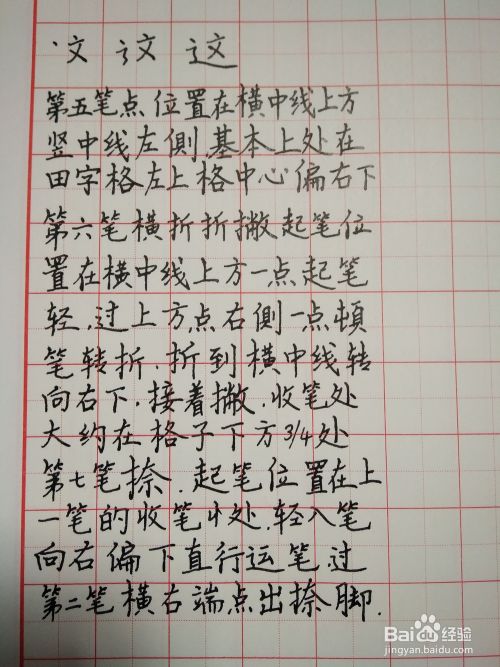 文 这
第五笔点位置在横中线上方
竖中线左側.基本上处在
田字格左上格中心偏右下
第六笔横折折撇起笔位
置在横中线上方一点起笔
轻.过上方点右側一点頓
笔转折.折到横中线转
向右下.接着撇.收笔处
大约在格子下方3/4处
第七笔捺.起笔位置在上
一笔的收笔处.轻入笔
向右偏下直行运笔.过
第二笔横右端点出捺脚.
Baidu经验
jingyan.baidu.com